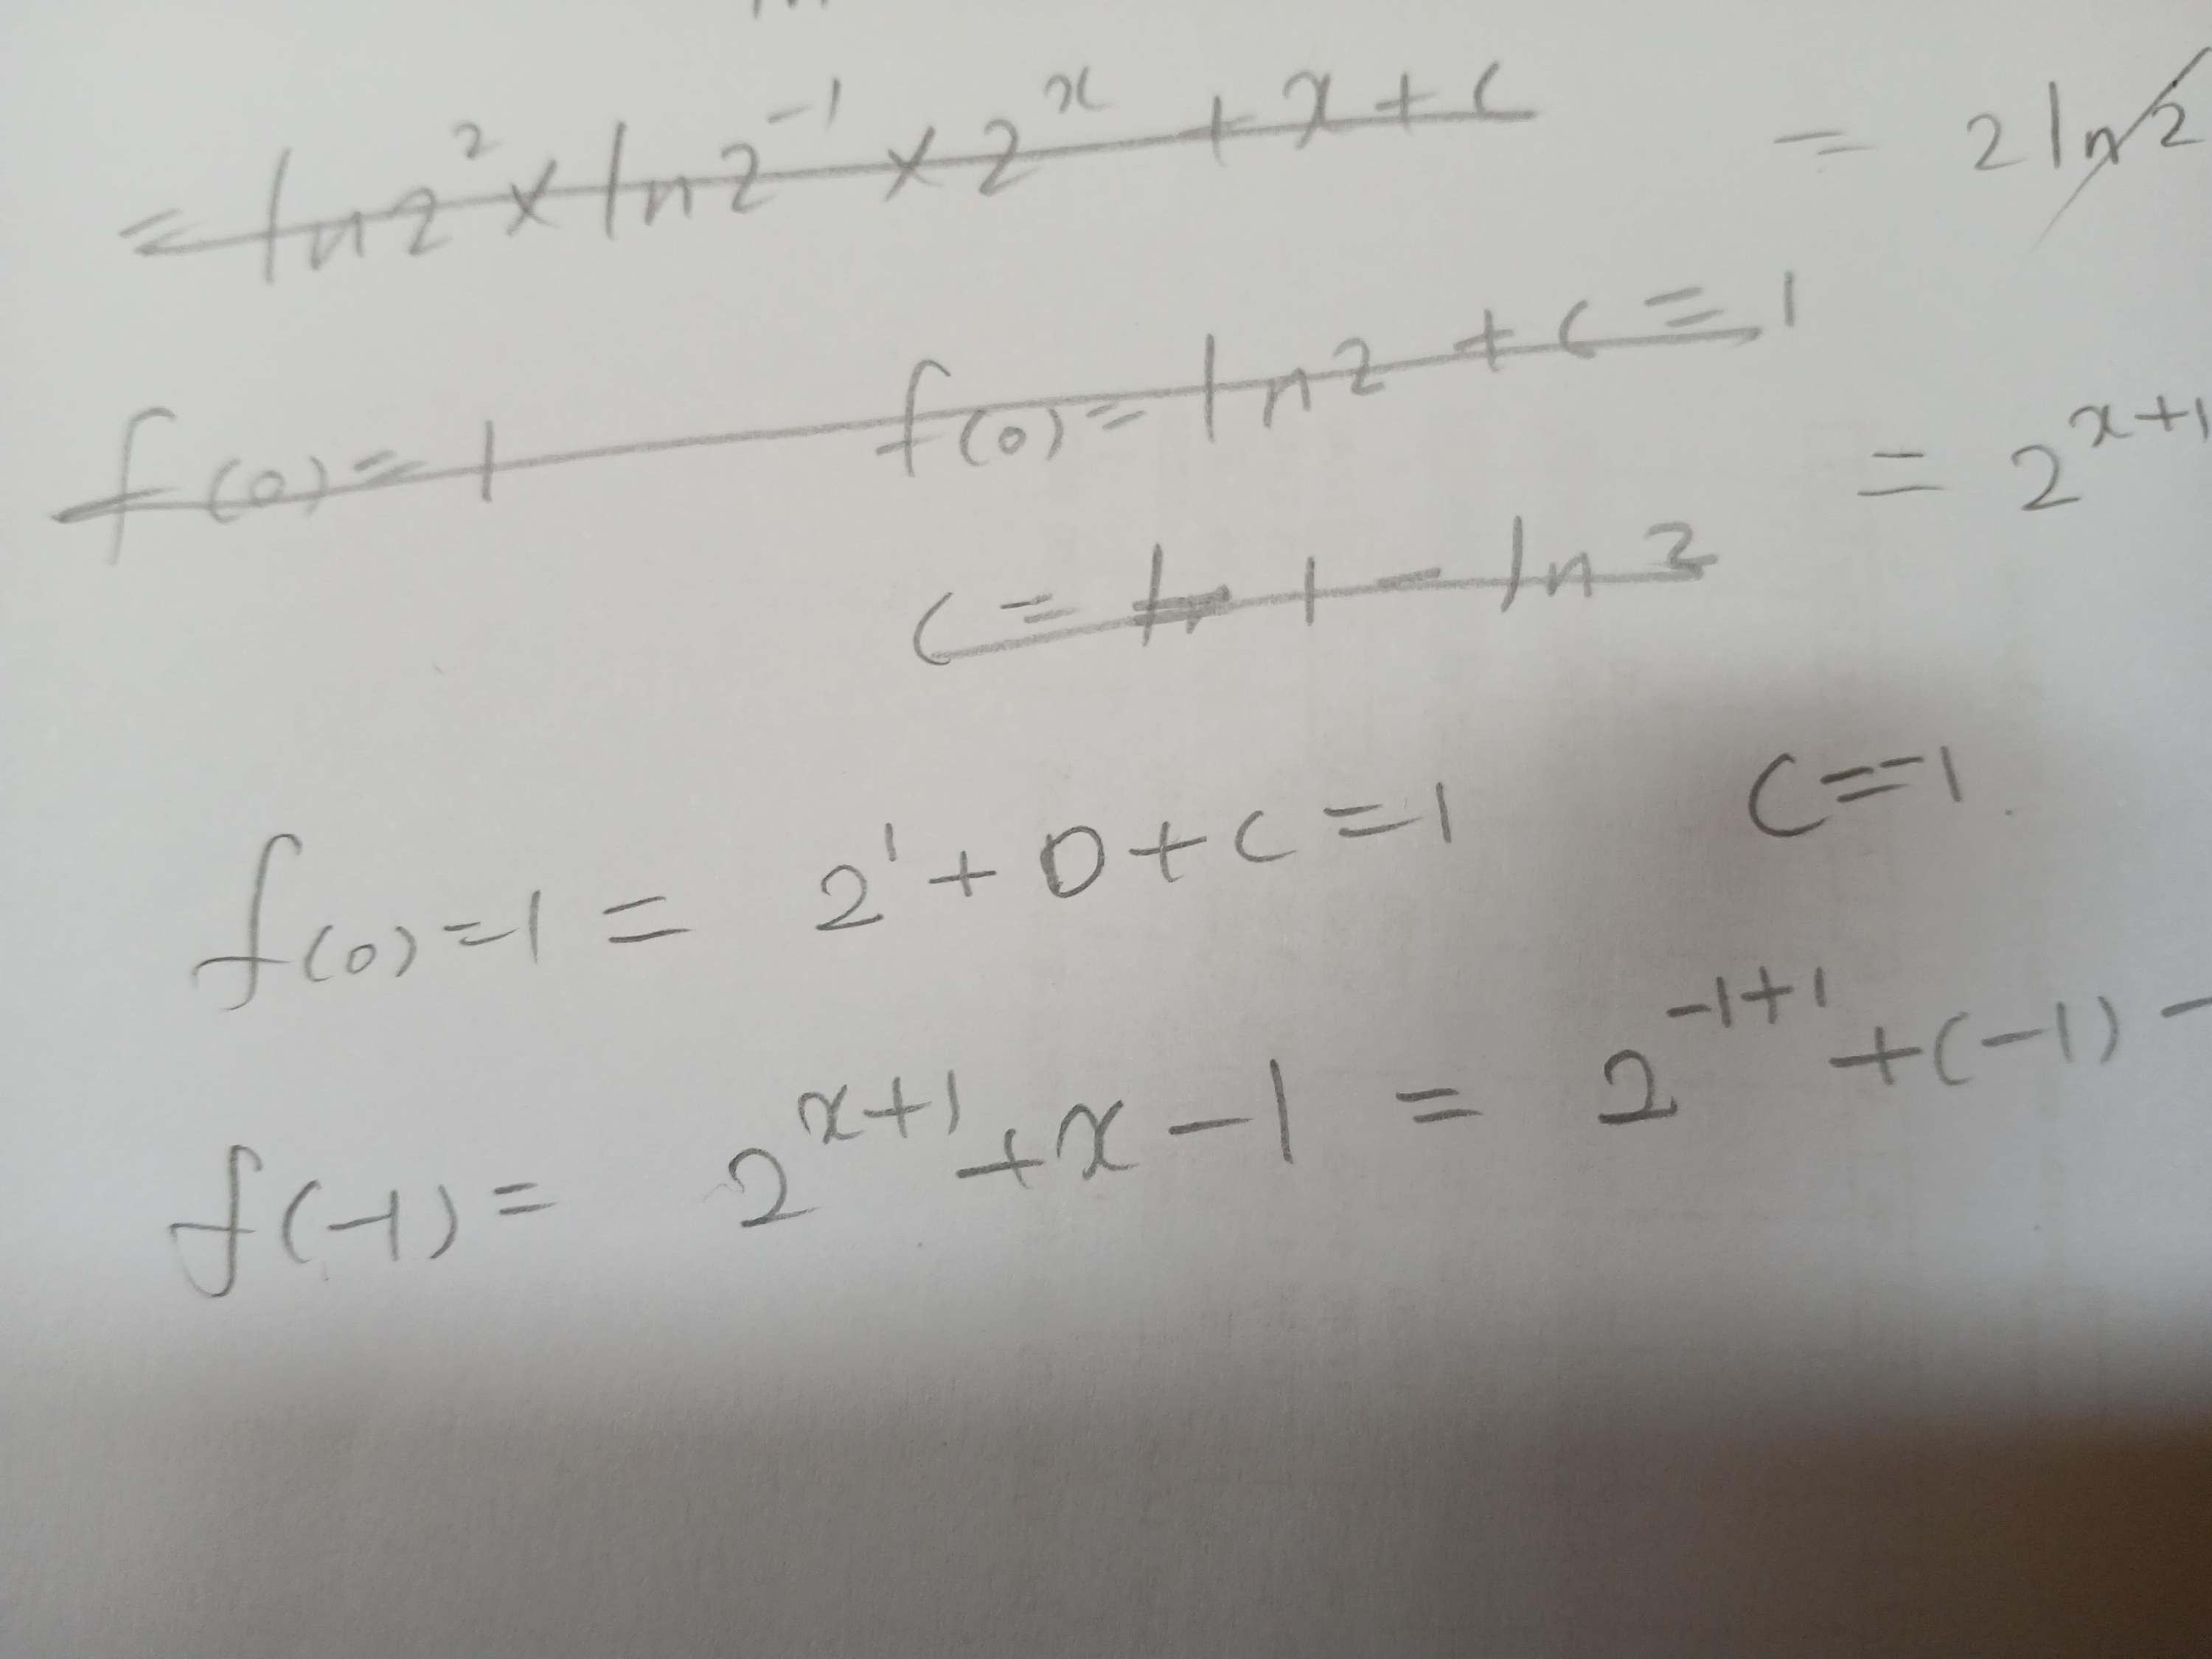 = ln2² × ln2⁻¹ × 2ˣ + x + c = 2 ln2
f(0) = 1 f(0) = ln2 + c = 1
= 2ˣ⁺¹
c = 1 - ln2
f(0) = 1 = 2¹ + 0 + c = 1 c = -1
f(-1) = 2ˣ⁺¹ + x - 1 = 2⁻¹⁺¹ + (-1) -